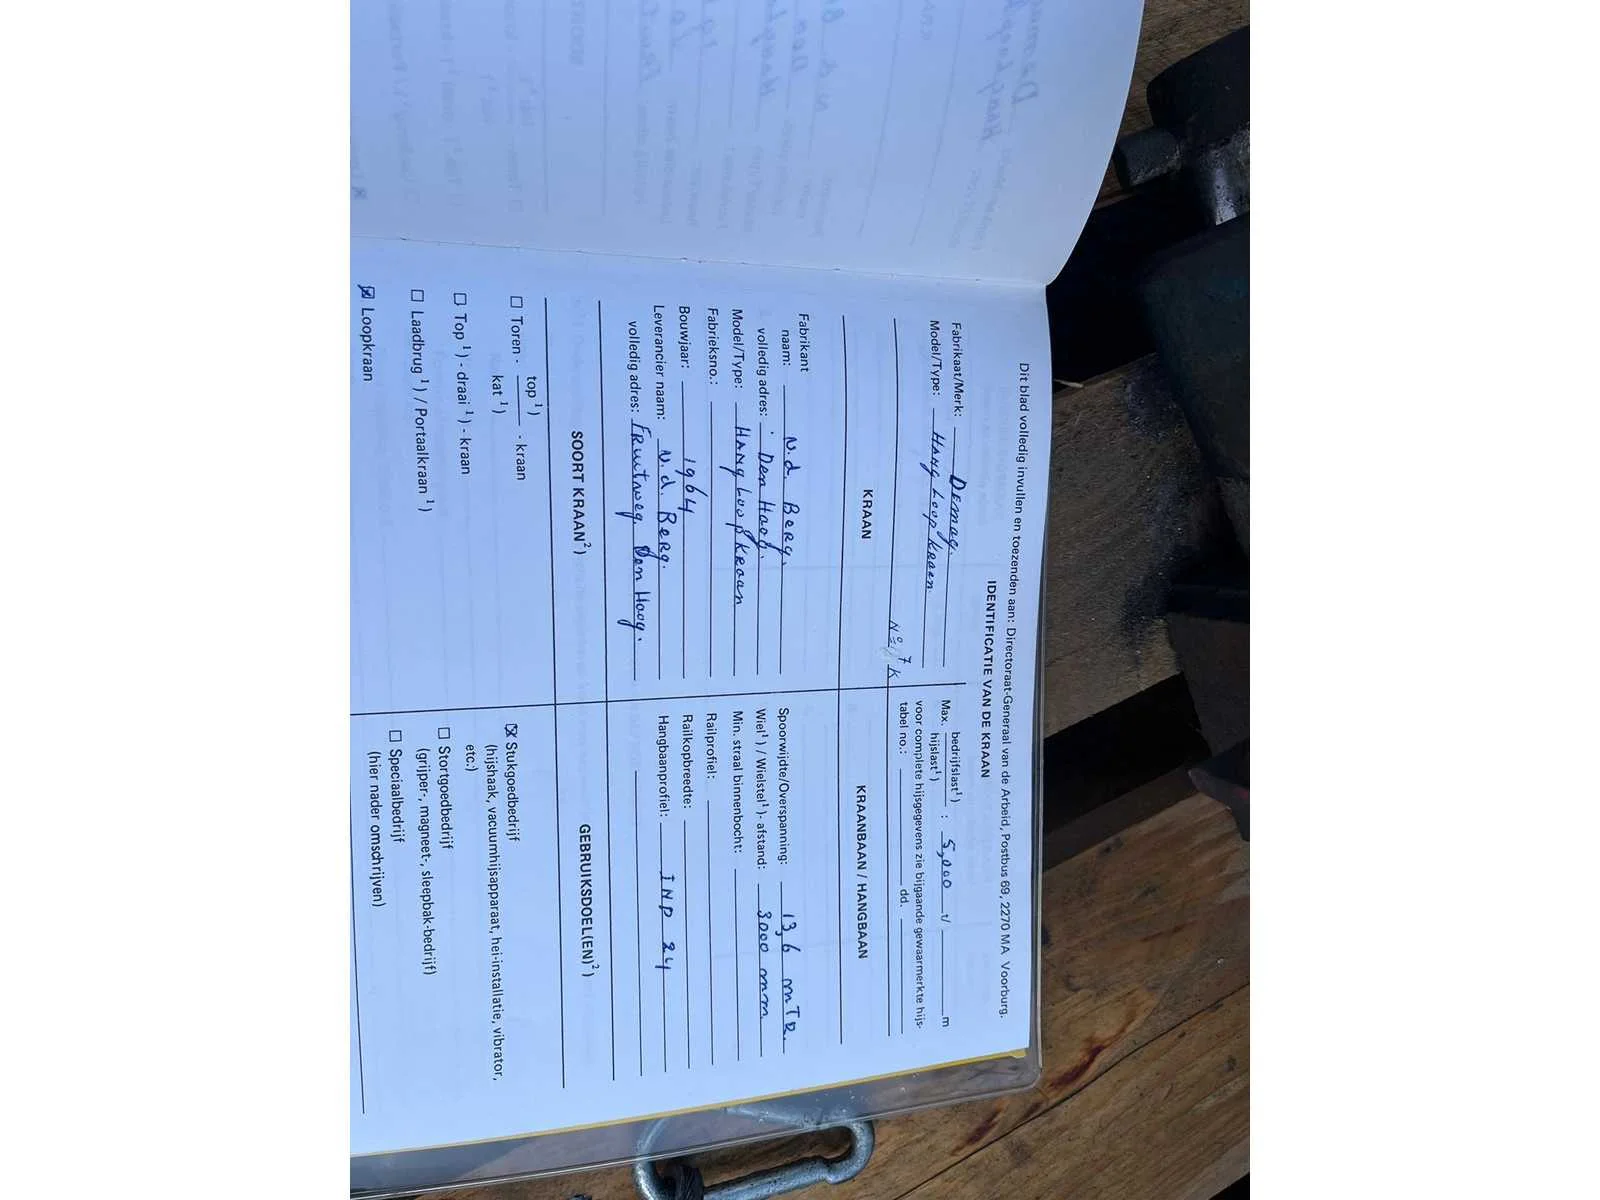 Dit blad volledig invullen en toezenden aan: Directoraat-Generaal van de Arbeid, Postbus 69, 2270 MA Voorburg.
IDENTIFICATIE VAN DE KRAAN
Fabrikaat/Merk: Demag.
Model/Type: Hang Loop Kraan.
No 7 K
Max. bedrijfslast¹) / hijslast¹) : 5,000 t/ m
voor complete hijsgegevens zie bijgaande gewaarmerkte hijs-
tabel no.: dd.
KRAAN
Fabrikant
naam: v.d. Berg.
volledig adres: Den Haag.
Model/Type: Hang Loop Kraan
Fabrieksno.:
Bouwjaar: 1964
Leverancier naam: v.d. Berg.
volledig adres: Fruitweg. Den Haag.
KRAANBAAN / HANGBAAN
Spoorwijdte/Overspanning: 13,6 mTR.
Wiel¹) / Wielstel¹)- afstand: 3000 mm
Min. straal binnenbocht:
Railprofiel:
Railkopbreedte:
Hangbaanprofiel: INP 24
SOORT KRAAN²)
☐ Toren - top¹) / kat¹) - kraan
☐ Top¹) - draai¹) - kraan
☐ Laadbrug¹) / Portaalkraan¹)
☒ Loopkraan
GEBRUIKSDOEL(EN)²)
☒ Stukgoedbedrijf
(hijshaak, vacuumhijsapparaat, hei-installatie, vibrator,
etc.)
☐ Stortgoedbedrijf
(grijper-, magneet-, sleepbak-bedrijf)
☐ Speciaalbedrijf
(hier nader omschrijven)